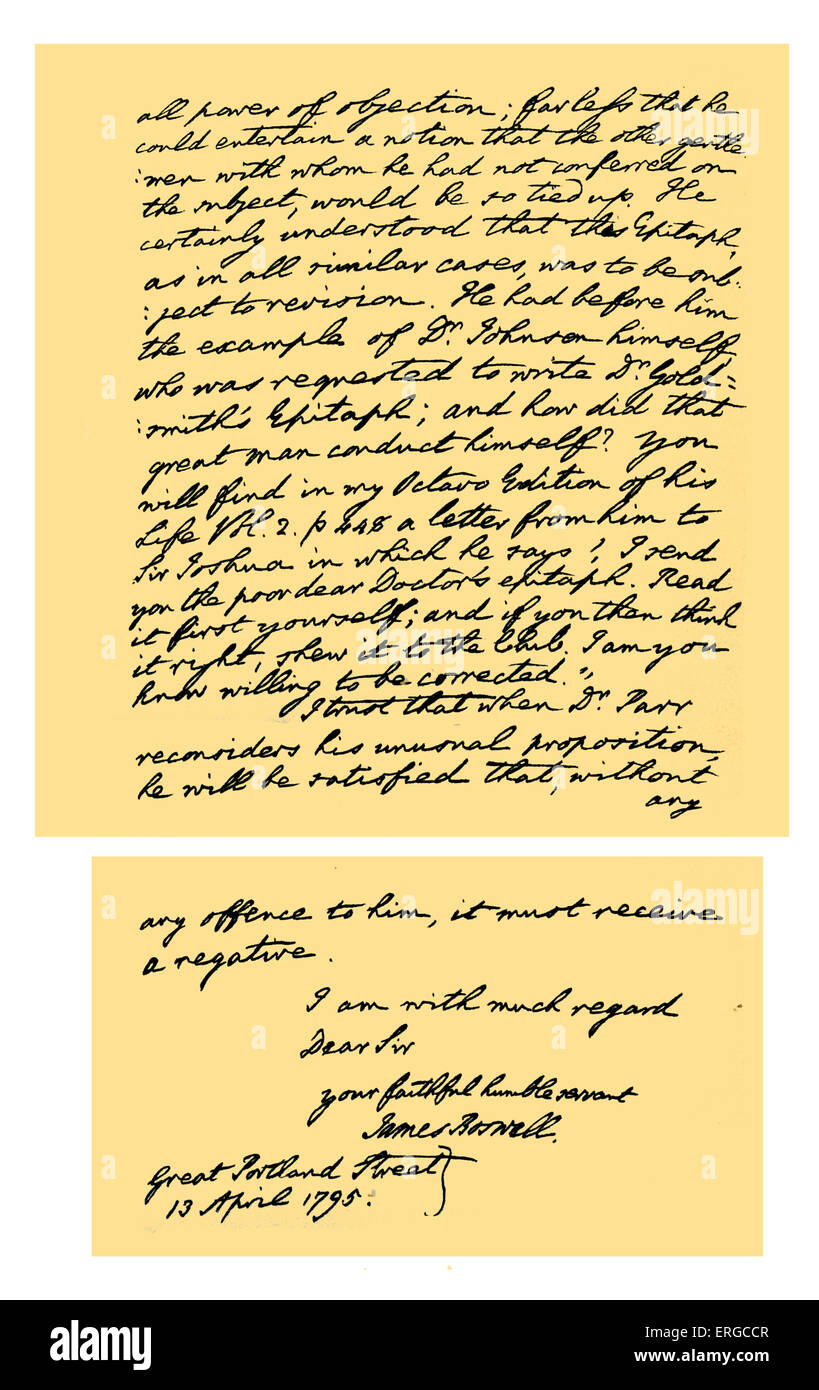 all power of objection; far less that he
could entertain a notion that the other gentle
:men with whom he had not conferred on
the subject, would be so tied up. He
certainly understood that this Epitaph,
as in all similar cases, was to be sub:
:ject to revision. He had before him
the example of Dr. Johnson himself,
who was requested to write Dr. Gold=
:smith's Epitaph; and how did that
great man conduct himself? You
will find in my Octavo Edition of his
Life Vol. 2. p 448 a letter from him to
Sir Joshua in which he says, "I send
you the poor dear Doctor's epitaph. Read
it first yourself; and if you then think
it right, shew it to the Club. I am you
know willing to be corrected."
I trust that when Dr. Parr
reconsiders his unusual proposition,
he will be satisfied that, without
any
any offence to him, it must receive
a negative.
I am with much regard
Dear Sir
your faithful humble servant
James Boswell.
Great Portland Street
13 April 1795.
alamy
Image ID: ERGCCR
www.alamy.com